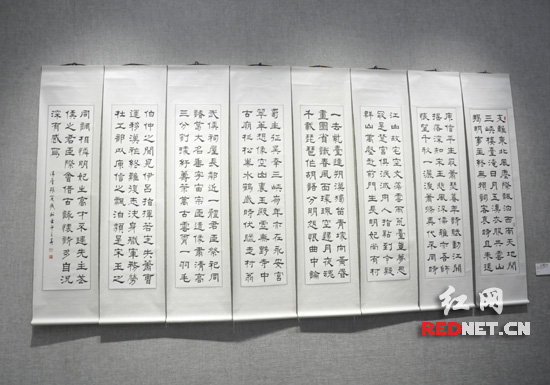 支離東北風塵際飄泊西南天地間
三峽樓臺淹日月五溪衣服共雲山
羯胡事主終無賴詞客哀時且未還
庾信平生最蕭瑟暮年詩賦動江關
搖落深知宋玉悲風流儒雅亦吾師
悵望千秋一灑淚蕭條異代不同時
江山故宅空文藻雲雨荒臺豈夢思
最是楚宮俱泯滅舟人指點到今疑
群山萬壑赴荊門生長明妃尚有村
一去紫臺連朔漠獨留青塚向黃昏
畫圖省識春風面環珮空歸月夜魂
千載琵琶作胡語分明怨恨曲中論
蜀主征吳幸三峽崩年亦在永安宮
翠華想像空山裏玉殿虛無野寺中
古廟杉松巢水鶴歲時伏臘走村翁
武侯祠屋長鄰近一體君臣祭祀同
諸葛大名垂宇宙宗臣遺像肅清高
三分割據紆籌策萬古雲霄一羽毛
伯仲之間見伊呂指揮若定失蕭曹
運移漢祚終難復志決身殲軍務勞
杜工部以庾信之飄泊宋玉之
同調相憐明妃才不遇先主
侯之君臣際會借古跡多自況
深有感焉
红网
REDNET.CN